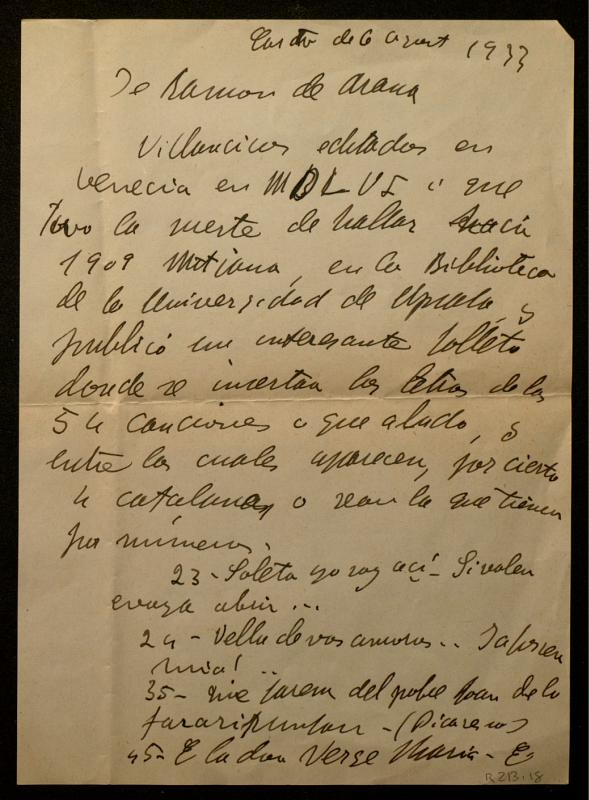 de 6 agost 1933
De Ramon de Arana
Villancicos editados en
Venecia en MDLVI i que
Tuvo la suerte de hallar hacia
1909 Mitjana, en la Biblioteca
de la Universidad de Upsala, y
publicó un interesante folleto
donde se insertan las letras de las
54 canciones a que aludo, y
entre las cuales aparecen, por cierto
4 catalanas, o sean la que tienen
por números.
23 - Soleta yo soy ací - Si voleu
e vaya abrir ...
24 - Vella de vos amoros ..
mia! ..
35 - Que farem del pobre Joan de la
- (Picaresco)
45 - E la don Verge Maria - E
R ZB-18